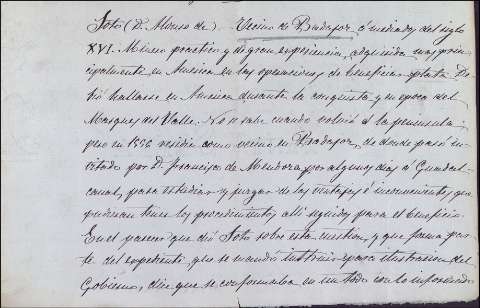 Soto (D. Alonso de). Vecino de Badajoz á mediados del siglo
XVI. Minero practico y de gran experiencia, adquirida muy prin-
cipalmente en America en las operaciones de beneficiar plata. De-
bió hallarse en America durante la conquista y en epoca del
Marques del Valle. No se sabe cuando volvió á la peninsula;
pero en 1556 residia como vecino en Badajoz, de donde pasó in-
vitado por D. Francisco de Mendoza por algunos dias á Guadal-
canal, para estudiar y juzgar de las ventajas é inconvenientes que
pudieran tener los procedimientos alli seguidos para el beneficio.
En el parecer que dió Soto sobre esta cuestion, y que forma par-
te del expediente que se mandó instruir para ilustracion del
Gobierno, dice que se conformaba en un todo con lo informado